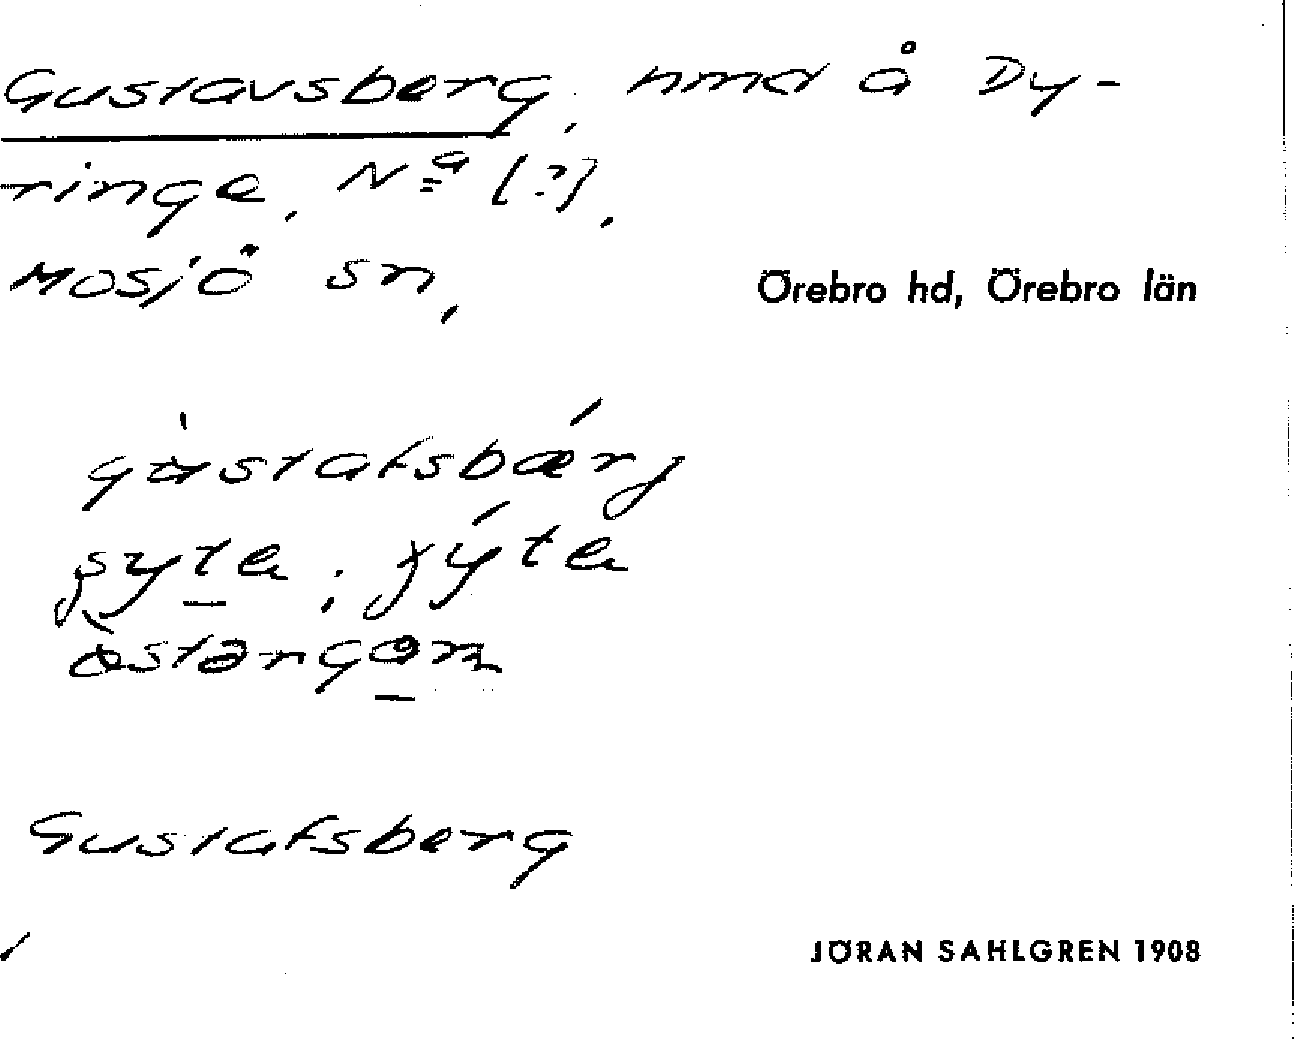 Gustavsberg, hmd å Dy-
ringe, Nª [?],
Mosjö sn,
Örebro hd, Örebro län
gùstafsbǽrj
syte; jýta
òstangom
Gustafsberg
JÖRAN SAHLGREN 1908